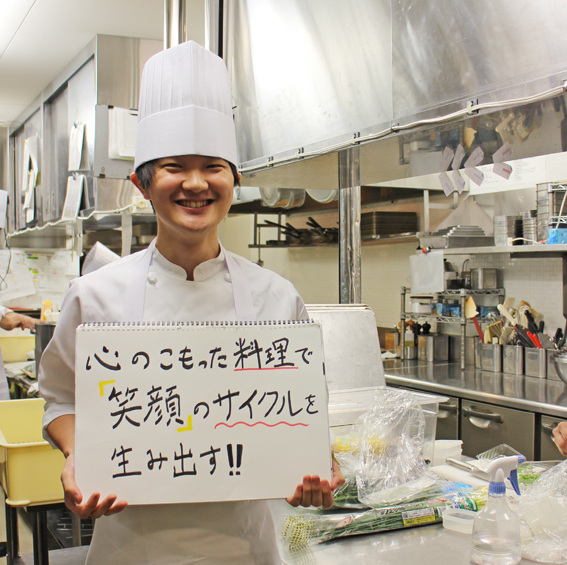 心のこもった料理で
「笑顔」のサイクルを
生み出す!!